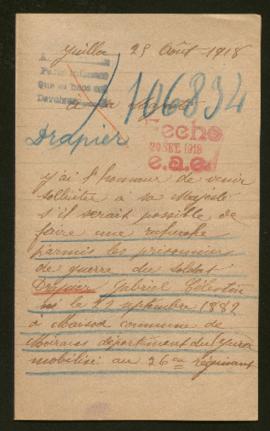 29 Août 1918
106834
Drapier
Fecho
20 SET. 1918
e.a.e.
J'ai l'honneur de venir
solliciter à sa Majesté
s'il serait possible de
faire une recherche
parmis les prisonniers
de guerre du soldat
Drapier Gabriel Célestin
né le 22 septembre 1882
à commune de
Moirans département du Jura
mobilisé au 26me Régiment